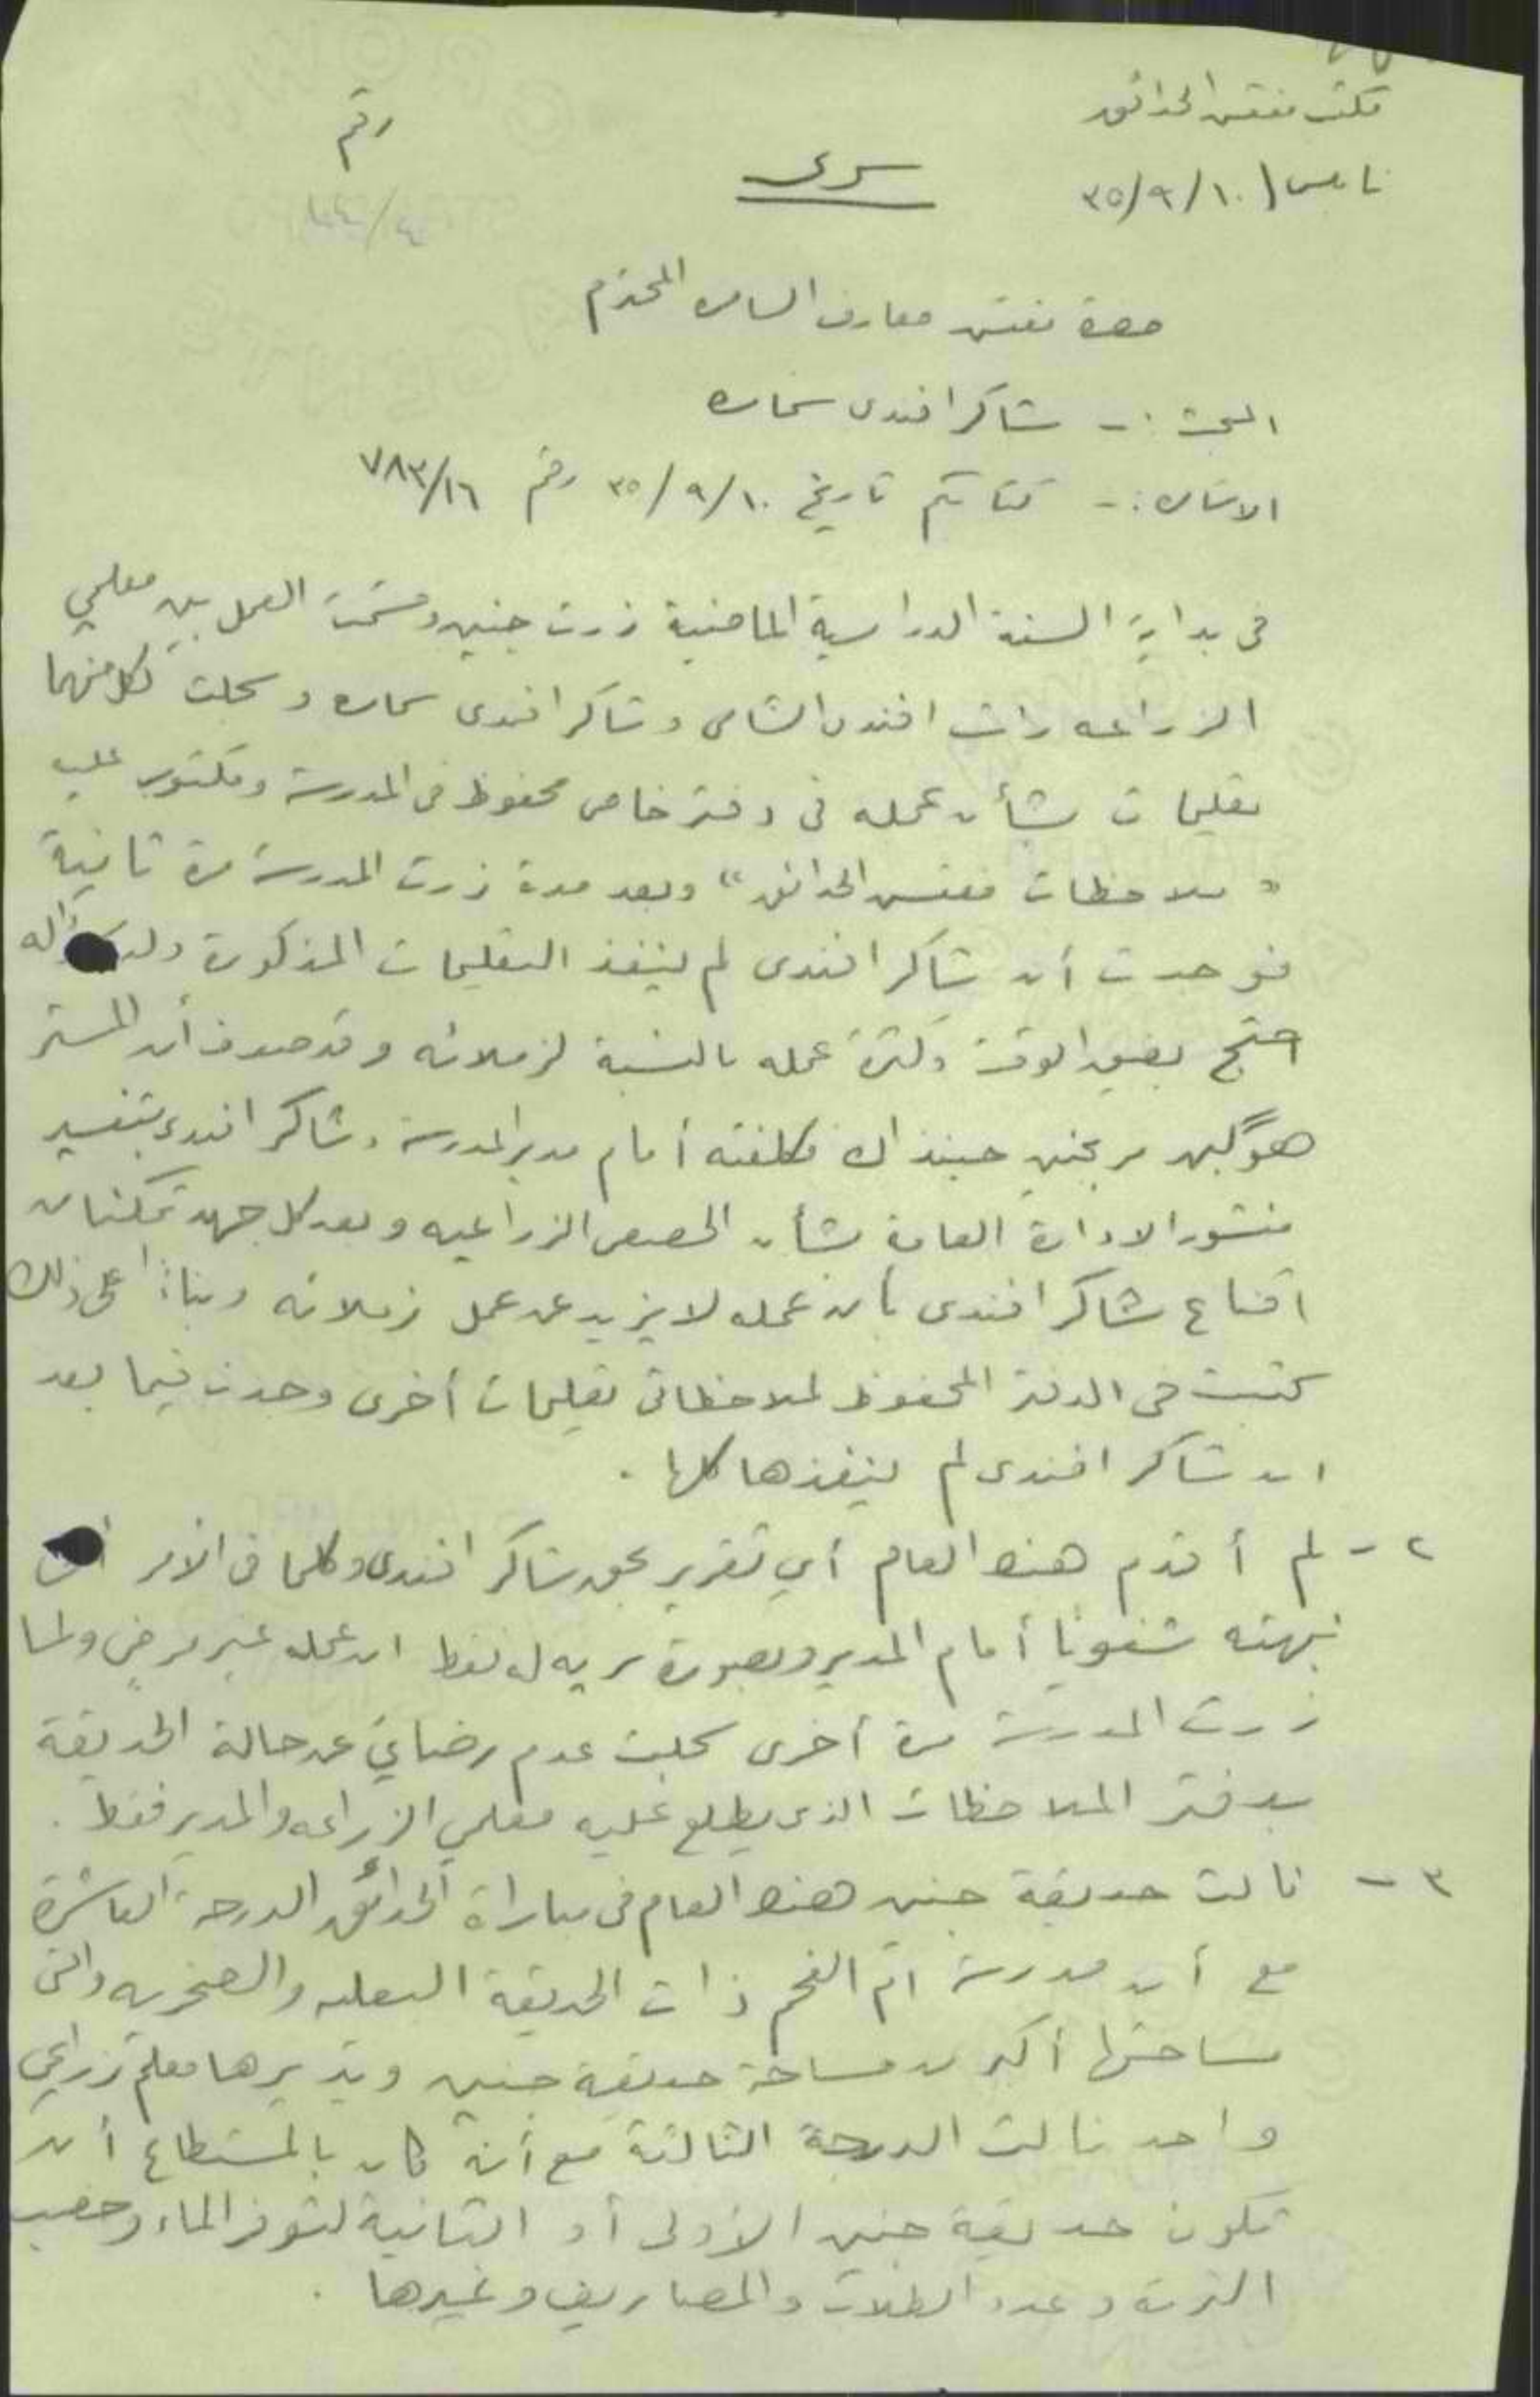 مكتب مفتش الحدائق
رقم
نابلس ١٠/٩/٣٥
سري
٤/٤٤
حضرة مفتش معارف السامرة المحترم
البحث :- شاكر افندي سمارة
الاشارة :- كتابكم تاريخ ١٠/٩/٣٥ رقم ٧٨٣/١٦
في بداية السنة الدراسية الماضية زرت جنين وقسّمت العمل بين معلمي
الزراعه افندي الشامي وشاكر افندي سماره وسجلت لكل منهما
تعليمات بشأن عمله في دفتر خاص محفوظ في المدرسة ومكتوب عليه
" ملاحظات مفتش الحدائق " وبعد مدة زرت المدرسة مرة ثانية
فوجدت أن شاكر افندي لم ينفذ التعليمات المذكورة
احتج بضيق الوقت وكثرة عمله بالنسبة لزملائه وقد صدف أن المستر
مر بجنين حينذاك فكلفته أمام مدير المدرسة وشاكر افندي بتفسير
منشور الادارة العامة بشأن الحصص الزراعيه وبعد كل جهد تمكنا من
اقناع شاكر افندي بأن عمله لا يزيد عن عمل زملائه وبناءً على ذلك
كتبت في الدفتر المحفوظ لملاحظاتي تعليمات أخرى وجدت فيما بعد
ان شاكر افندي لم ينفذها كلها .
٢ - لم أقدم هذا العام أي تقرير بحق شاكر افندي وكلما في الأمر
نبهته شفوياً أمام المدير وبصورة سريه له فقط ان عمله غير مرضٍ ولما
زرت المدرسة مرة أخرى سجلت عدم رضائي عن حالة الحديقة
بدفتر الملاحظات الذي يطلع عليه معلمي الزراعه والمدير فقط .
٣ - نالت حديقة جنين هذا العام في مباراة الحدائق الدرجة العاشرة
مع أن مدرسة ام الفحم ذات الحديقة البعليه والصخريه والتي
مساحتها أكبر من مساحة حديقة جنين ويديرها معلم زراعي
واحد نالت الدرجة الثالثة مع أنه كان بالمستطاع أن
تكون حديقة جنين الأولى أو الثانية لتوفر الماء وخصب
التربة وعدد الطلاب والمصاريف وغيرها .